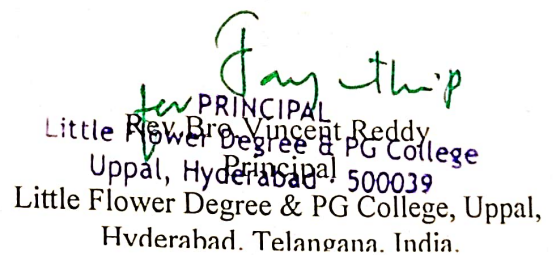 for
PRINCIPAL
Little Flower Degree & PG College
Uppal, Hyderabad - 500039
Rev. Bro. Vincent Reddy
Principal
Little Flower Degree & PG College, Uppal,
Hyderabad, Telangana, India.